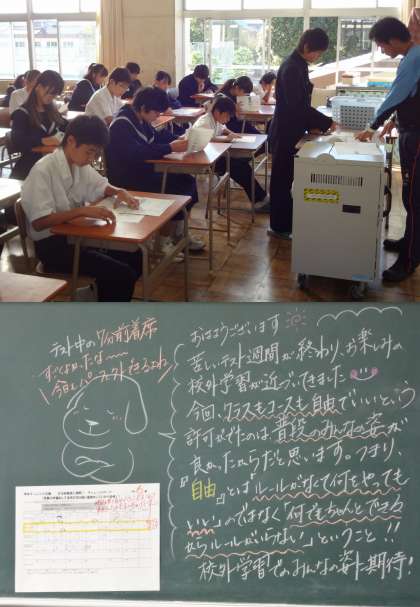 テスト中の7分前着席
すばらしかったな〜
今日もパーフェクトできるよね
おはようございます
苦しいテスト週間が終わり、お楽しみの
校外学習が近づいてきました
今回、クラスもコースも自由でいいという
許可がでたのは、普段のみんなの姿が
良かったからだと思います。つまり、
『自由』とは「ルールがなくて何をやっても
いい」のではなく「何でもちゃんとできる
からルールがいらない」ということ!!
校外学習でのみんなの姿に期待!